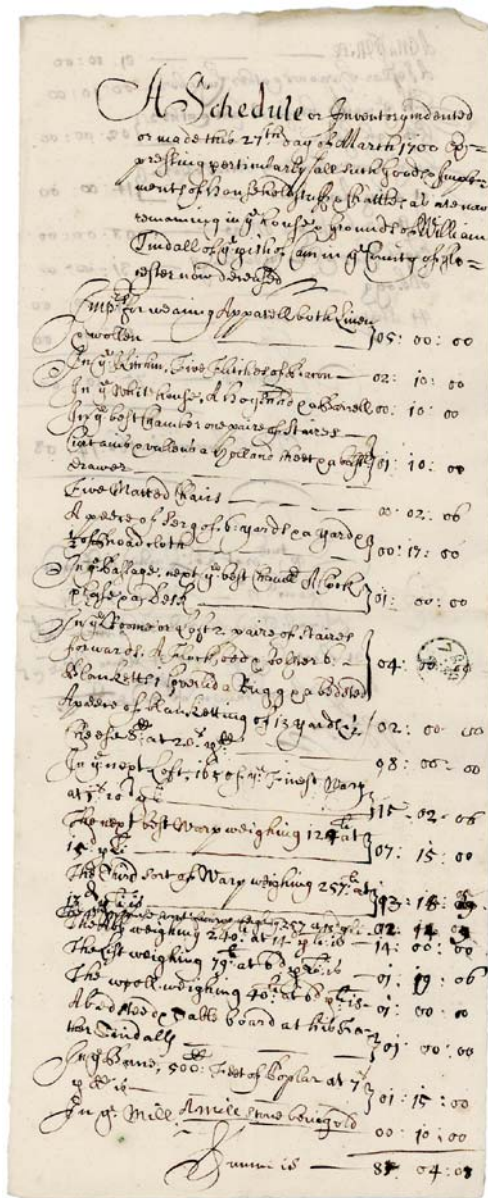 A Schedule or Inventory indented
or made this 27th day of March 1700 Ex=
pressing pertticularly all such goods & Imple=
ments of Household stuffe & Chattles as are now
remaining in ye house & grounds of William
Tindall of ye pish of Cam in ye County of Glo=
cester now deceased
Impis for wearing Apparell both Linen
& wollen 05: 00: 00
In ye Kitchin, Five Flitches of Bacon — 02: 10: 00
In ye Whithouse, A Hogshead & a Barrell 00: 10: 00
In ye best Chamber one paire of Staires
Curtains & vallens a Holland sheet & a
drawer 01: 10: 00
Five Matted Chairs 00: 02: 06
A peece of Serg of 6: yards & a yard &
of broad cloth 00: 17: 00
In ye Passage, next ye best Chamb A Clock
& Case & a Desk 01: 00: 00
In ye Roome or Loft 2 paire of Staires
forwards, A Flock bed & bolster 6:
Blanketts 1 Coverlid a Rugg & a bedsted 04:
A peece of blanketting of 13 yards 1/2 02: 00: 00
at 20s 98: 00: 00
In ye next Loft, 165 of ye Finest Warp
at 15: 02: 06
The next best Warp weighing 124 at
15d p li 07: 15: 00
The Third sort of Warp weighing 257: at
13 13: 18:
weighing 240: at 14 p li is — 14: 00: 00
The List weighing 79 at 6d p li is — 01: 19: 06
The wooll weighing 40 at 6d p li is — 01: 00: 00
A bedsted & Table board at his
ther Tindalls 01: 00: 00
In ye Barne, 500: Feet of Poplar at 7s
p is 01: 15: 00
In ye Mill A Mill Stone being old 00: 10: 00
Summe is — 04: 08